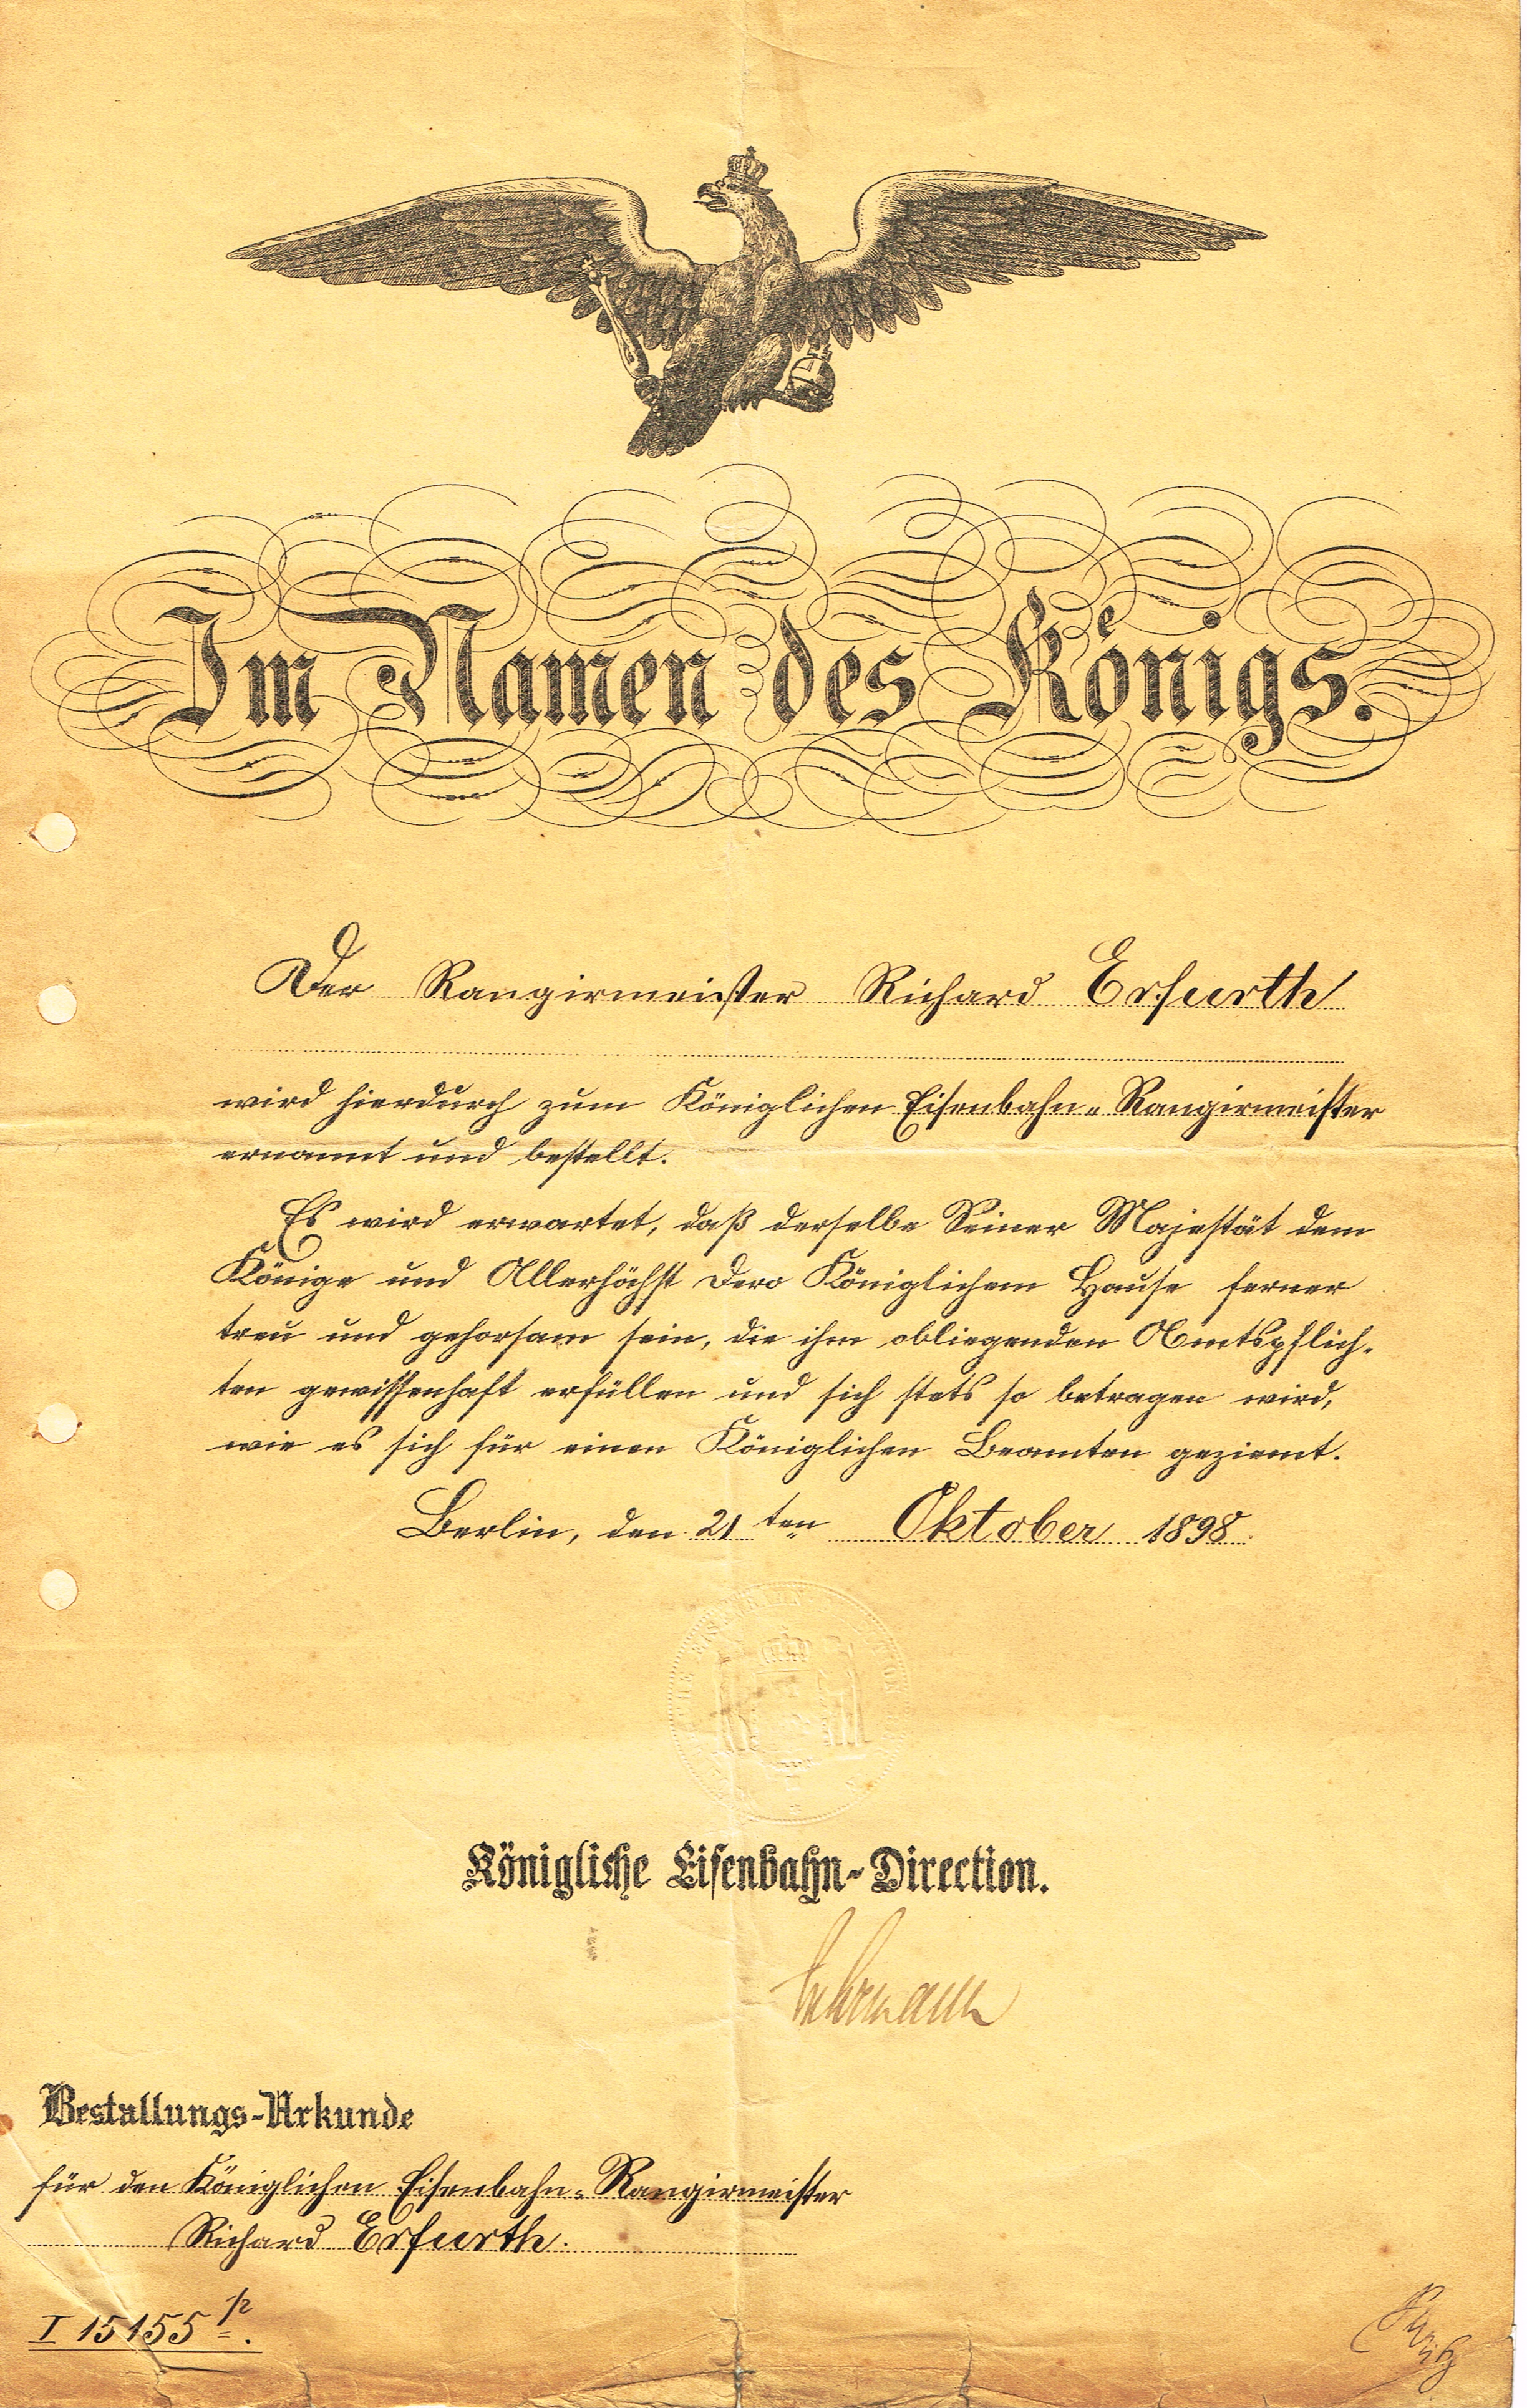 Im Namen des Königs.
Der Rangirmeister Richard Erfurth
wird hierdurch zum Königlichen Eisenbahn-Rangirmeister
ernannt und bestellt.
Es wird erwartet, daß derselbe Seiner Majestät dem
Könige und Allerhöchst Dero Königlichem Hause ferner
treu und gehorsam sein, die ihm obliegenden Amtspflich-
ten gewissenhaft erfüllen und sich stets so betragen wird,
wie es sich für einen Königlichen Beamten geziemt.
Berlin, den 21ten Oktober 1898.
Königliche Eisenbahn-Direction.
Bestallungs-Urkunde
für den Königlichen Eisenbahn-Rangirmeister
Richard Erfurth.
I 15155